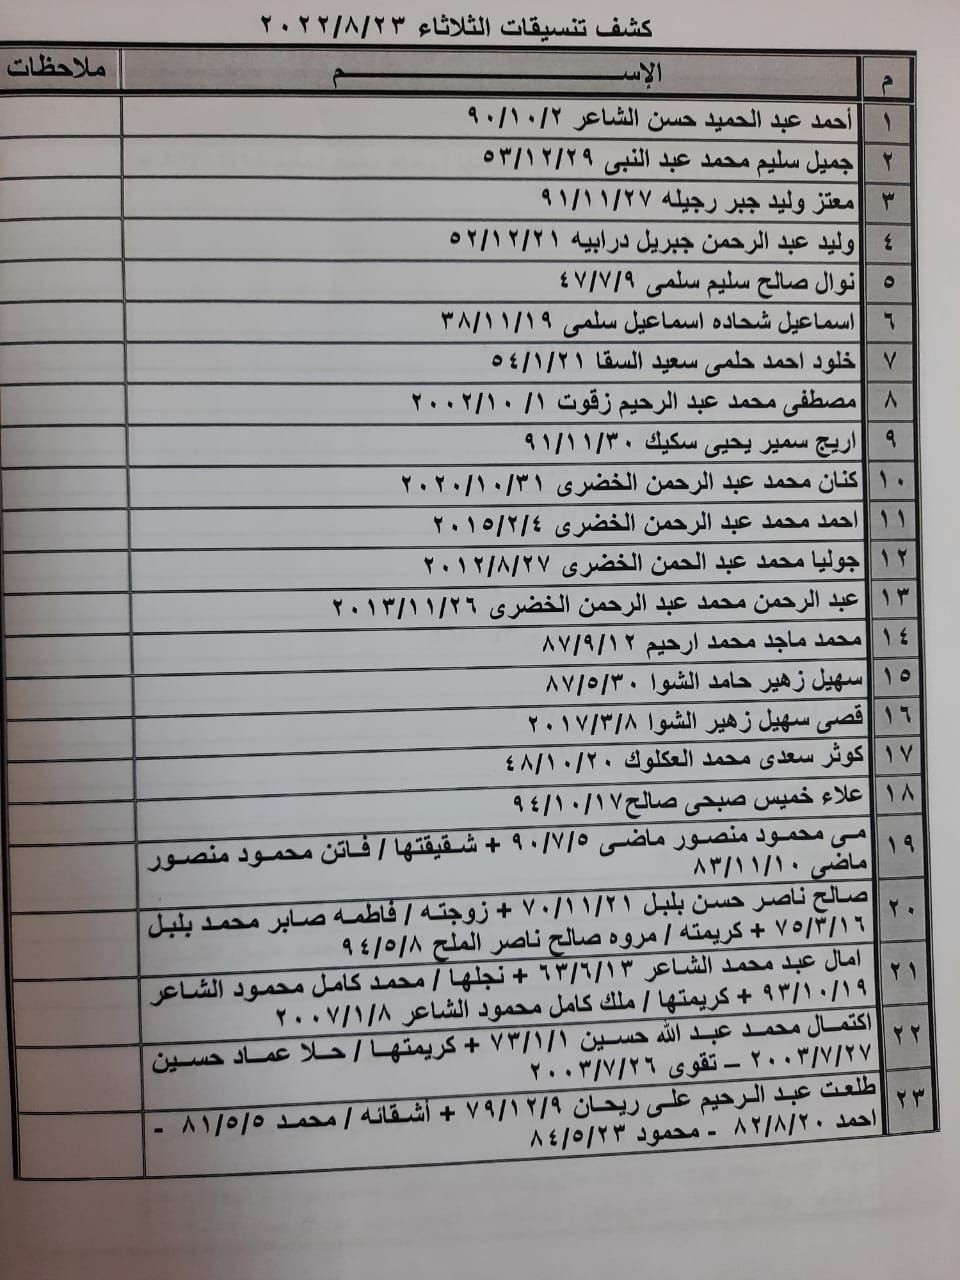 كشف تنسيقات الثلاثاء ٢٠٢٢/٨/٢٣
م الإســـــــــم ملاحظات
١ أحمد عبد الحميد حسن الشاعر ٩٠/١٠/٢
٢ جميل سليم محمد عبد النبى ٥٣/١٢/٢٩
٣ معتز وليد جبر رجيله ٩١/١١/٢٧
٤ وليد عبد الرحمن جبريل درابيه ٥٢/١٢/٢١
٥ نوال صالح سليم سلمى ٤٧/٧/٩
٦ اسماعيل شحاده اسماعيل سلمى ٣٨/١١/١٩
٧ خلود احمد حلمى سعيد السقا ٥٤/١/٢١
٨ مصطفى محمد عبد الرحيم زقوت ٢٠٠٢/١٠/١
٩ اريج سمير يحيى سكيك ٩١/١١/٣٠
١٠ كنان محمد عبد الرحمن الخضرى ٢٠٢٠/١٠/٣١
١١ احمد محمد عبد الرحمن الخضرى ٢٠١٥/٢/٤
١٢ جوليا محمد عبد الحمن الخضرى ٢٠١٢/٨/٢٧
١٣ عبد الرحمن محمد عبد الرحمن الخضرى ٢٠١٣/١١/٢٦
١٤ محمد ماجد محمد ارحيم ٨٧/٩/١٢
١٥ سهيل زهير حامد الشوا ٨٧/٥/٣٠
١٦ قصى سهيل زهير الشوا ٢٠١٧/٣/٨
١٧ كوثر سعدى محمد العكلوك ٤٨/١٠/٢٠
١٨ علاء خميس صبحى صالح٩٤/١٠/١٧
١٩ مى محمود منصور ماضى ٩٠/٧/٥ + شقيقتها / فاتن محمود منصور
ماضى ٨٣/١١/١٠
٢٠ صالح ناصر حسن بلبل ٧٠/١١/٢١ + زوجته / فاطمه صابر محمد بلبل
٧٥/٣/١٦ + كريمته / مروه صالح ناصر الملح ٩٤/٥/٨
٢١ امال عبد محمد الشاعر ٦٣/٦/١٣ + نجلها / محمد كامل محمود الشاعر
٩٣/١٠/١٩ + كريمتها / ملك كامل محمود الشاعر ٢٠٠٧/١/٨
٢٢ اكتمال محمد عبد الله حسين ٧٣/١/١ + كريمتها / حلا عماد حسين
٢٠٠٣/٧/٢٧ – تقوى ٢٠٠٣/٧/٢٦
٢٣ طلعت عبد الرحيم على ريحان ٧٩/١٢/٩ + أشقائه / محمد ٨١/٥/٥ -
احمد ٨٢/٨/٢٠ - محمود ٨٤/٥/٢٣